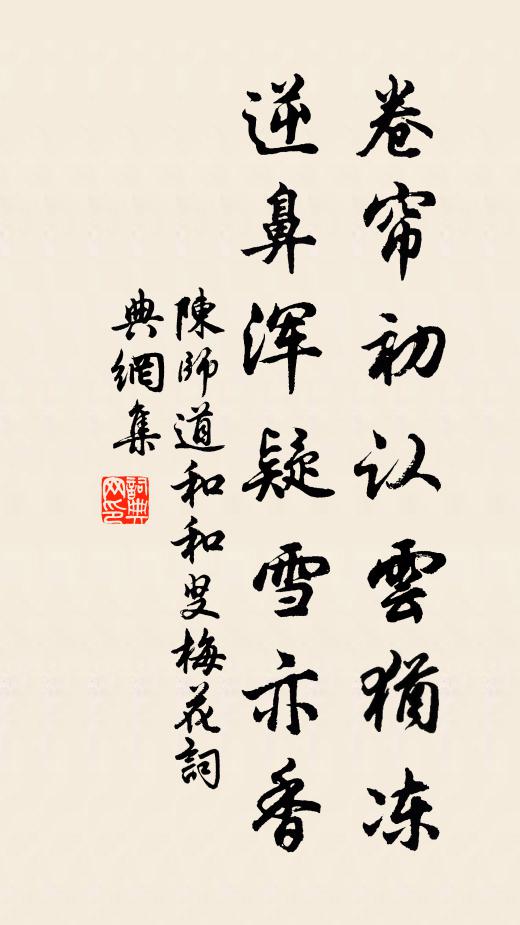 卷帘初认雲猶冻
逆鼻浑疑雪亦香
陳師道和和叟梅花詞
典網集
詞典
网印